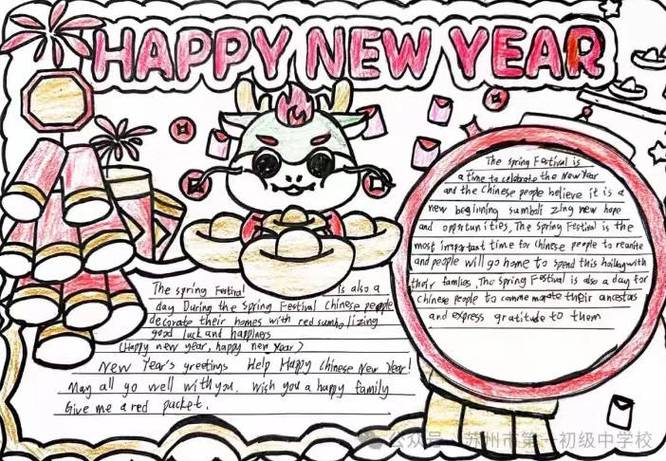 HAPPY NEW YEAR
The spring Festival is
a time to celebrate the New Year
and the Chinese people believe it is a
new beginning sumboli zing new hope
and opportunities. The Spring Festival is the
most important time for Chinese people to reunite
and people will go home to spend this holiday with
their families. The Spring Festival is also a day for
Chinese people to commemorate their ancestors
and express gratitude to them
The spring Festival is also a
day During the Spring Festival Chinese people
decorate their homes with red sumbolizing
good luck and happiness
(Happy new year, happy new year)
New Year's greetings Help Happy Chinese New Year!
May all go well with you. Wish you a happy family
Give me a red packet.
公众号 苏州市第一初级中学校